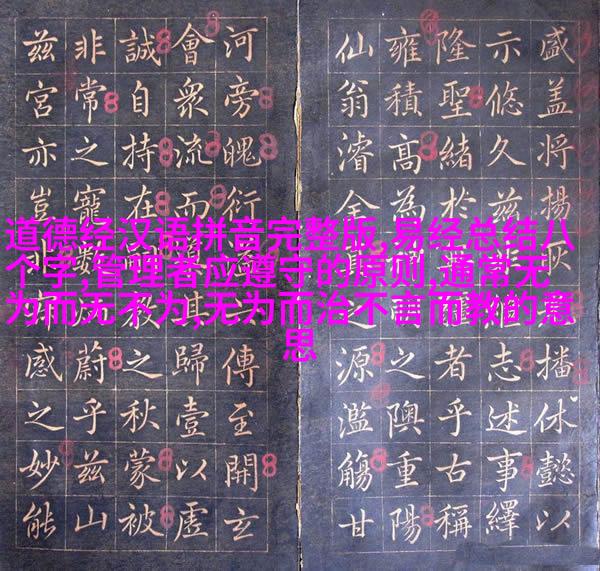 道德经汉语拼音完整版,易经总结八
个字,管理者应遵守的原则,通常无
为而无不为,无为而治不言而教的意
思
盛盖将揚播休懿以
示悠久茲志述事繹
隆聖緒於者乎古稱
雍積高為之隩重陽
仙翁濬全源濫觴甘
河旁魄衍傳至開玄
會衆流而歸壹以虛
誠自持在之秋蒙被
非常之寵蔚乎茲山
茲宮亦豈感之妙能